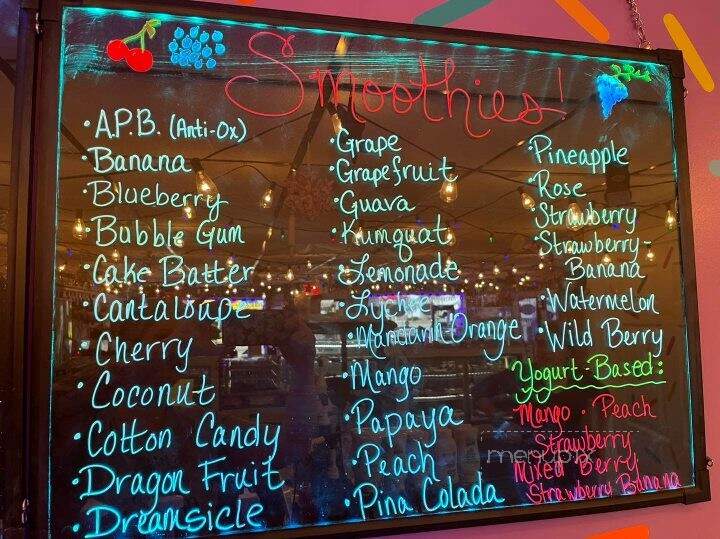 Smoothies!
• A.P.B. (Anti-Ox)
• Banana
• Blueberry
• Bubble Gum
• Cake Batter
• Cantaloupe
• Cherry
• Coconut
• Cotton Candy
• Dragon Fruit
• Dreamsicle
• Grape
• Grapefruit
• Guava
• Kumquat
• Lemonade
• Lychee
• Mandarin Orange
• Mango
• Papaya
• Peach
• Pina Colada
• Pineapple
• Rose
• Strawberry
• Strawberry-
Banana
• Watermelon
• Wild Berry
Yogurt-Based:
Mango • Peach
Strawberry
Mixed Berry
Strawberry Banana
menupix